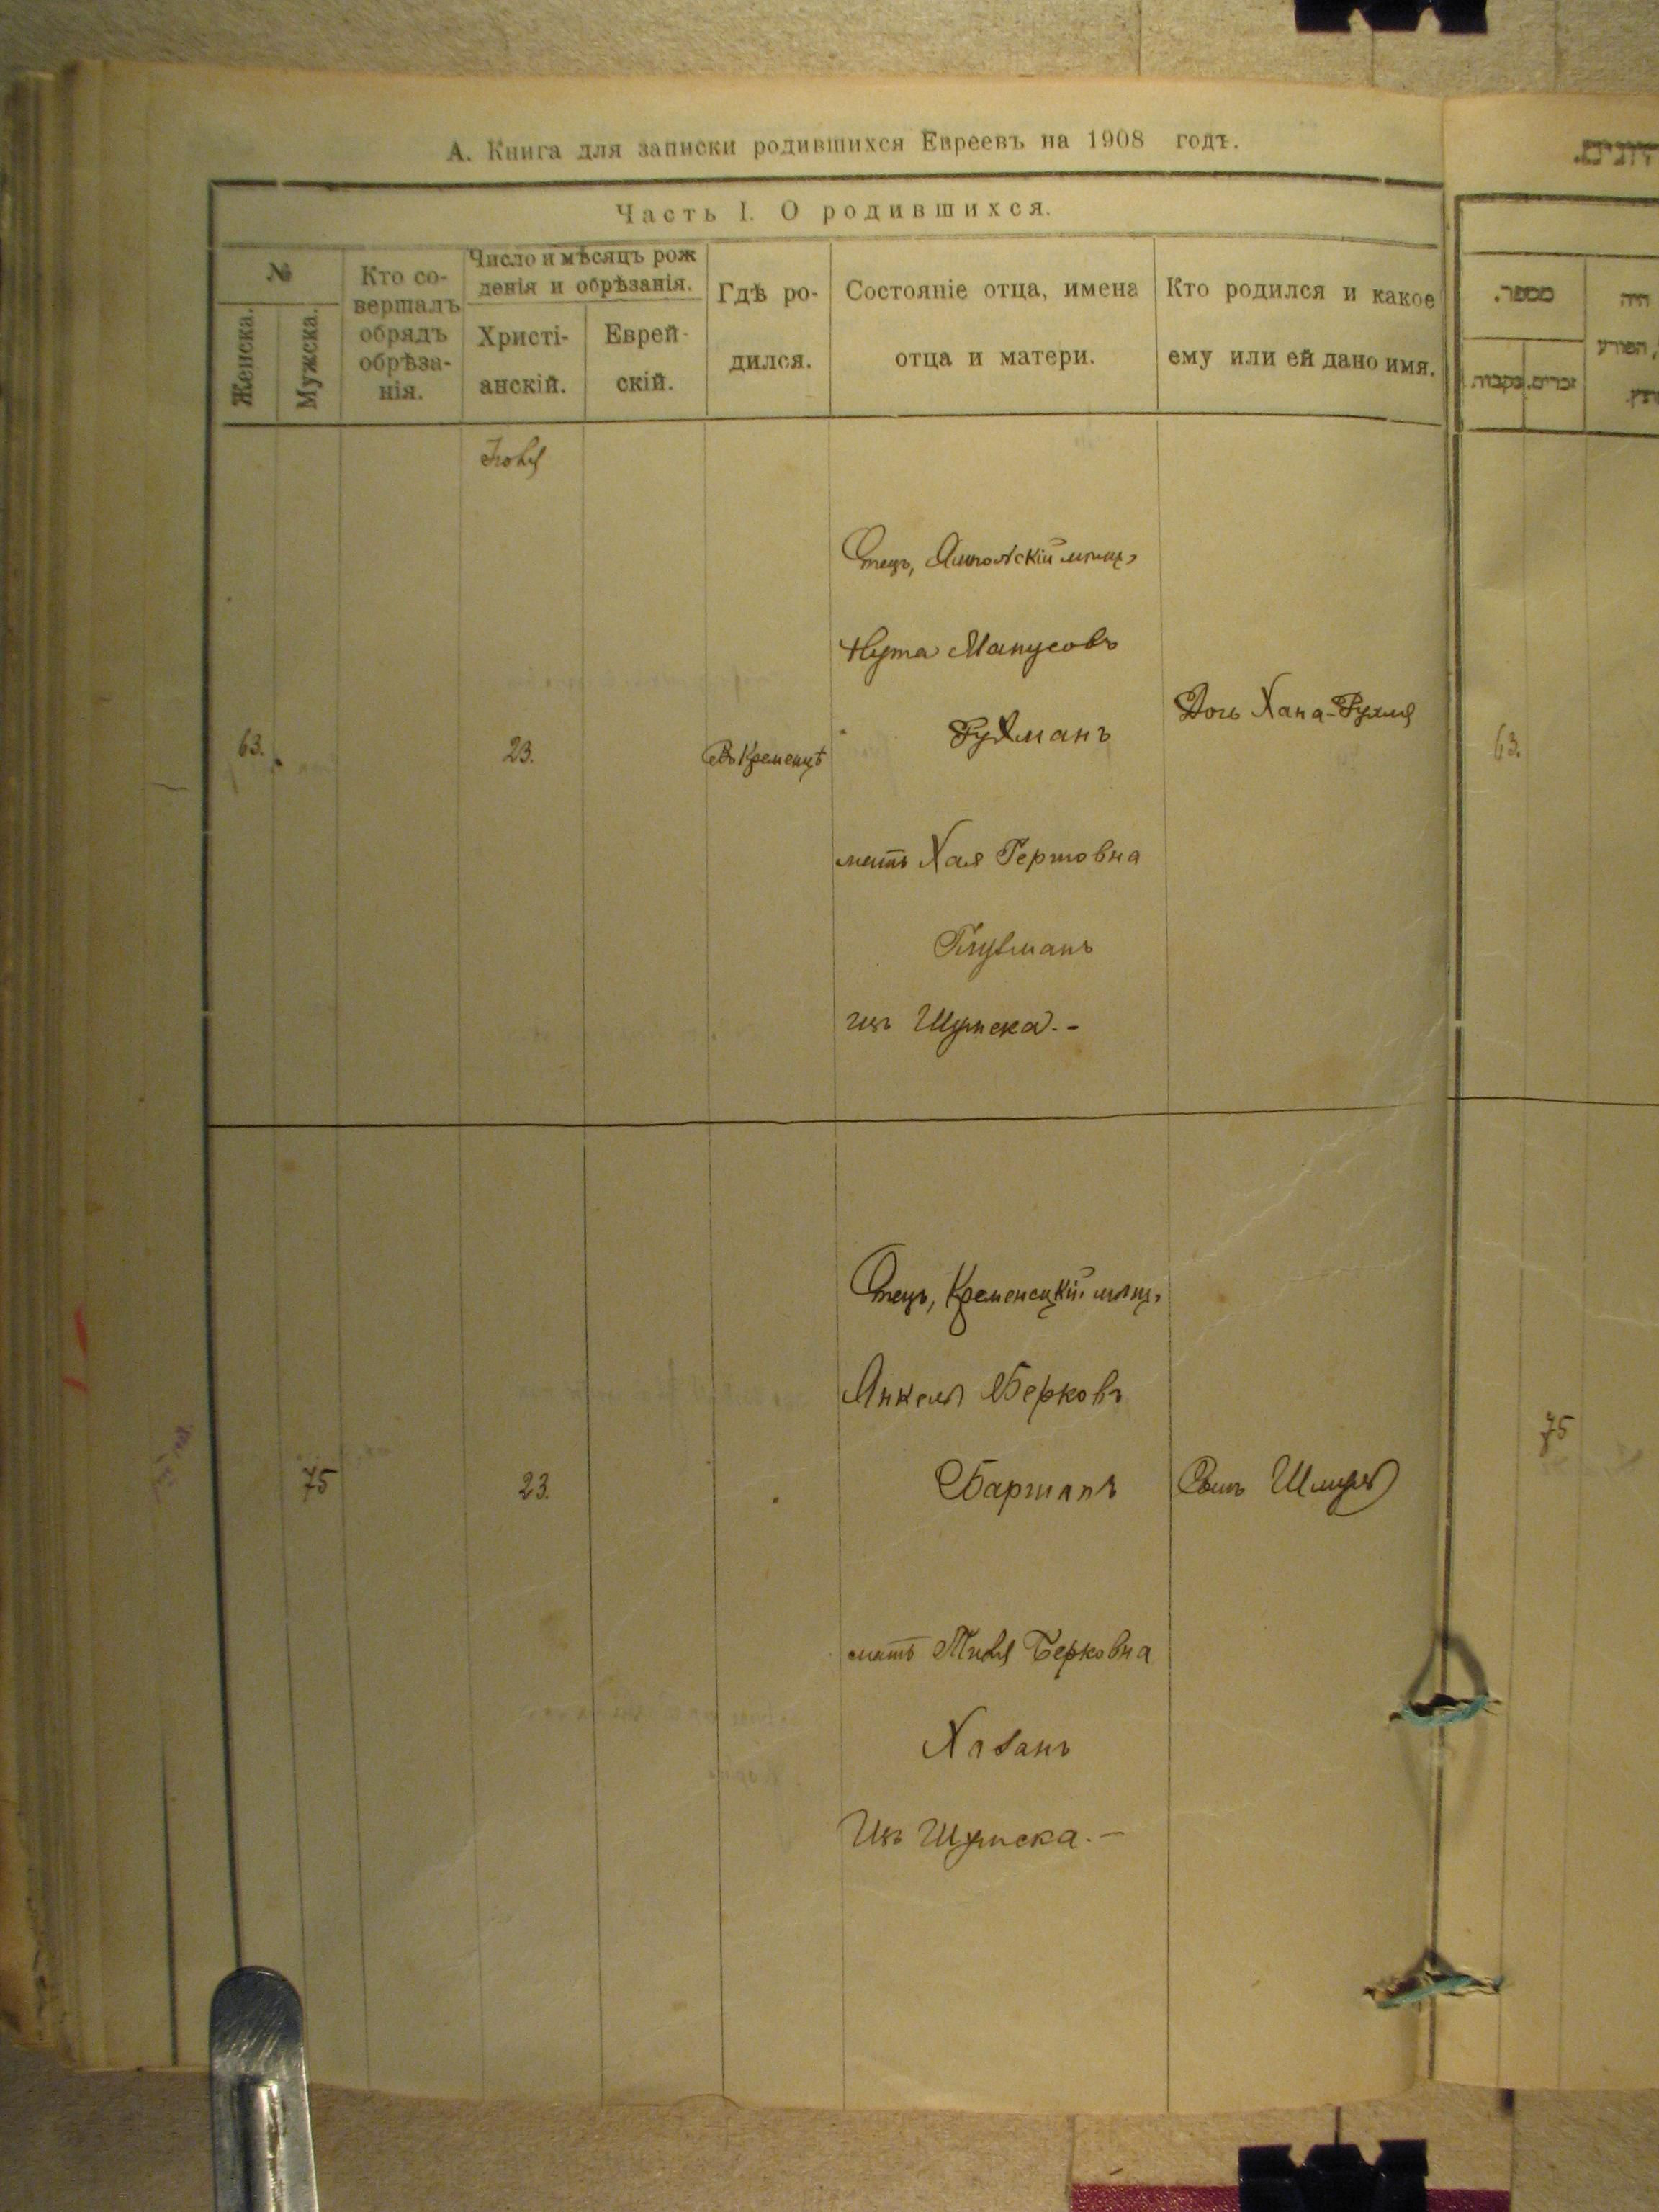 А. Книга для записки родившихся Евреевъ на 1908 годъ.
Часть I. О родившихся.
№
Женска.
Мужска.
Кто со-
вершалъ
обрядъ
обрѣза-
нія.
Число и мѣсяцъ рож
денія и обрѣзанія.
Христі-
анскій.
Еврей-
скій.
Гдѣ ро-
дился.
Состояніе отца, имена
отца и матери.
Кто родился и какое
ему или ей дано имя.
Іюля
63.
23.
Въ Кременцѣ
Отецъ, Ямпольскій мѣщ.
Нута Манусовъ
Гухманъ
мать Хая Гершовна
Глузманъ
изъ Шумска. -
Дочь Хана-Рухля
75
23.
Отецъ, Кременецкій мѣщ.
Янкель Берковъ
мать Тивя Берковна
Хазанъ
Изъ Шумска. -
Сынъ Шмуль
.מספר
.זכרים
.נקבות
היה
63.
75